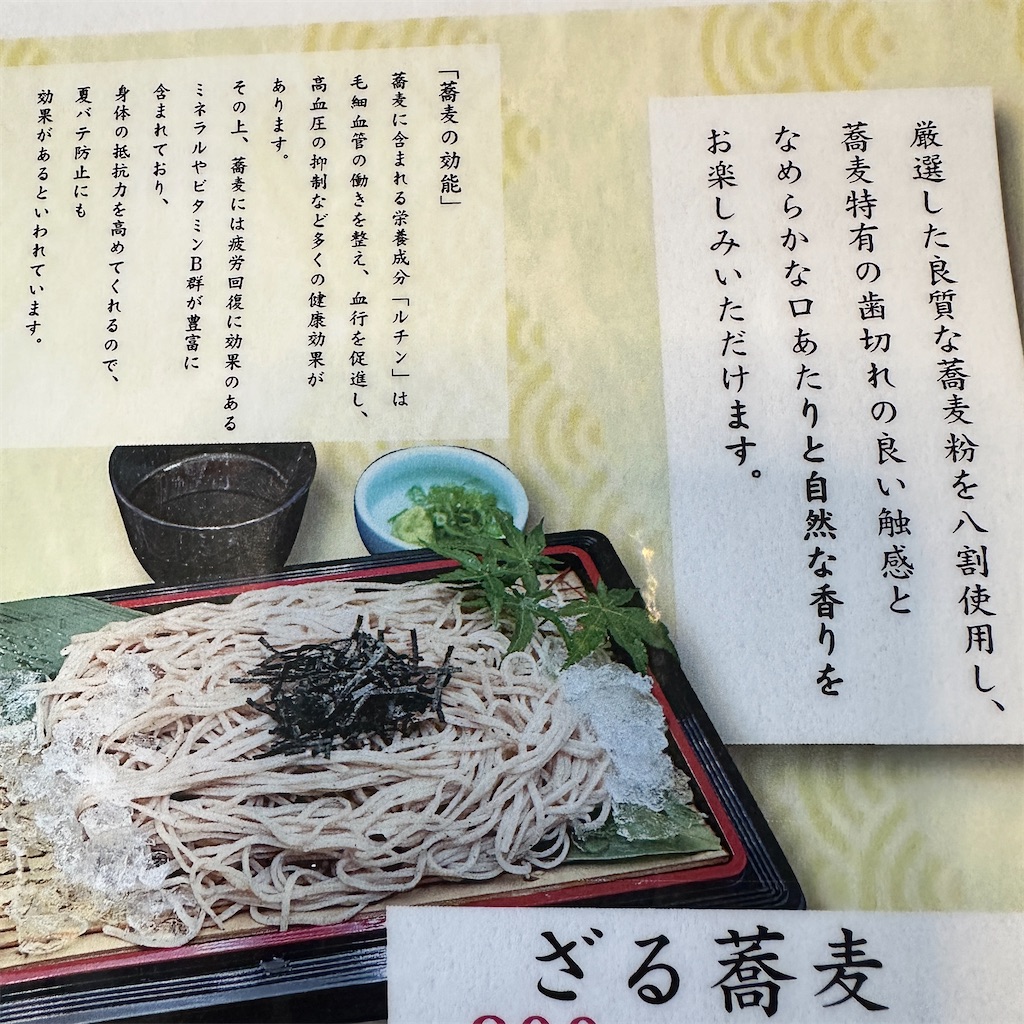 厳選した良質な蕎麦粉を八割使用し、
蕎麦特有の歯切れの良い触感と
なめらかな口あたりと自然な香りを
お楽しみいただけます。
「蕎麦の効能」
蕎麦に含まれる栄養成分「ルチン」は
毛細血管の働きを整え、血行を促進し、
高血圧の抑制など多くの健康効果が
あります。
その上、蕎麦には疲労回復に効果のある
ミネラルやビタミンB群が豊富に
含まれており、
身体の抵抗力を高めてくれるので、
夏バテ防止にも
効果があるといわれています。
ざる蕎麦